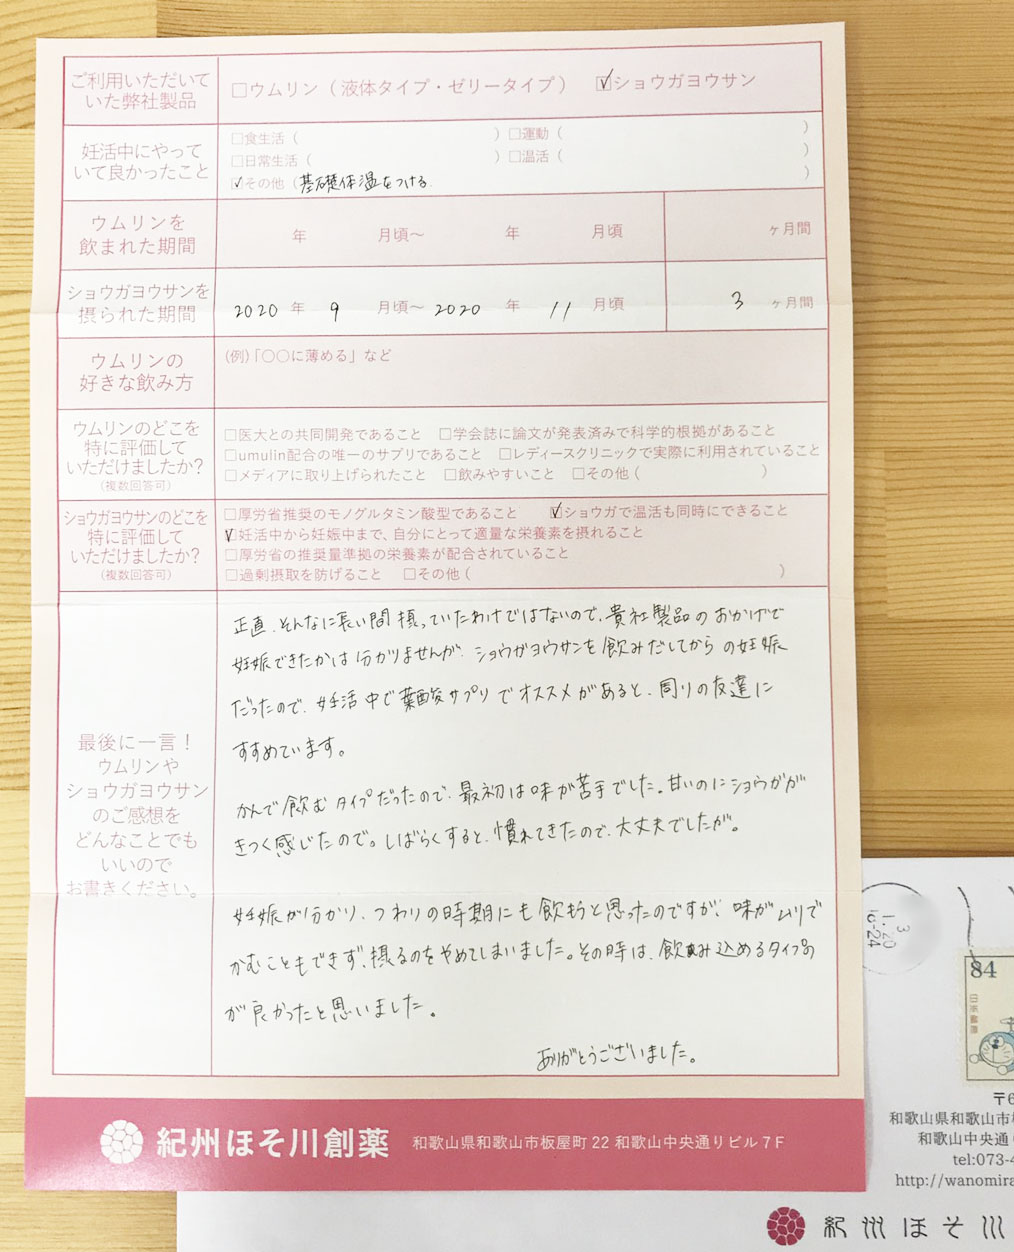 ご利用いただいて
いた弊社製品
□ウムリン（液体タイプ・ゼリータイプ）　☑ショウガヨウサン
妊活中にやって
いて良かったこと
□食生活（　　　）□運動（　　　）
□日常生活（　　　）□温活（　　　）
☑その他（基礎体温をつける　　　）
ウムリンを
飲まれた期間
年　月頃〜　年　月頃　ヶ月間
ショウガヨウサンを
摂られた期間
2020年 9 月頃〜 2020 年 11 月頃　3 ヶ月間
ウムリンの
好きな飲み方
(例)「○○に薄める」など
ウムリンのどこを
特に評価して
いただけましたか?
(複数回答可)
□医大との共同開発であること　□学会誌に論文が発表済みで科学的根拠があること
□umulin配合の唯一のサプリであること　□レディースクリニックで実際に利用されていること
□メディアに取り上げられたこと　□飲みやすいこと　□その他（　　　）
ショウガヨウサンのどこを
特に評価して
いただけましたか?
(複数回答可)
□厚労省推奨のモノグルタミン酸型であること　☑ショウガで温活も同時にできること
☑妊活中から妊娠中まで、自分にとって適量な栄養素を摂れること
□厚労省の推奨量準拠の栄養素が配合されていること
□過剰摂取を防げること　□その他（　　　）
最後に一言！
ウムリンや
ショウガヨウサン
のご感想を
どんなことでも
いいので
お書きください。
正直、そんなに長い間摂っていたわけではないので、貴社製品のおかげで
妊娠できたかは分かりませんが、ショウガヨウサンを飲みだしてからの妊娠
だったので、妊活中で葉酸サプリでオススメがあると、周りの友達に
すすめています。
かんで飲むタイプだったので、最初は味が苦手でした。甘いのにショウガが
きつく感じたので。しばらくすると、慣れてきたので、大丈夫でしたが。
妊娠が分かり、つわりの時期にも飲もうと思ったのですが、味がムリで
かむこともできず、摂るのをやめてしまいました。その時は、飲み込めるタイプの
が良かったと思いました。
ありがとうございました。
紀州ほそ川創薬　和歌山県和歌山市板屋町 22 和歌山中央通りビル 7 F
3
1.20
16-24
84
日本郵便
〒6
和歌山県和歌山市
和歌山中央通
tel:073-4
http://wanomira
紀州ほそ川